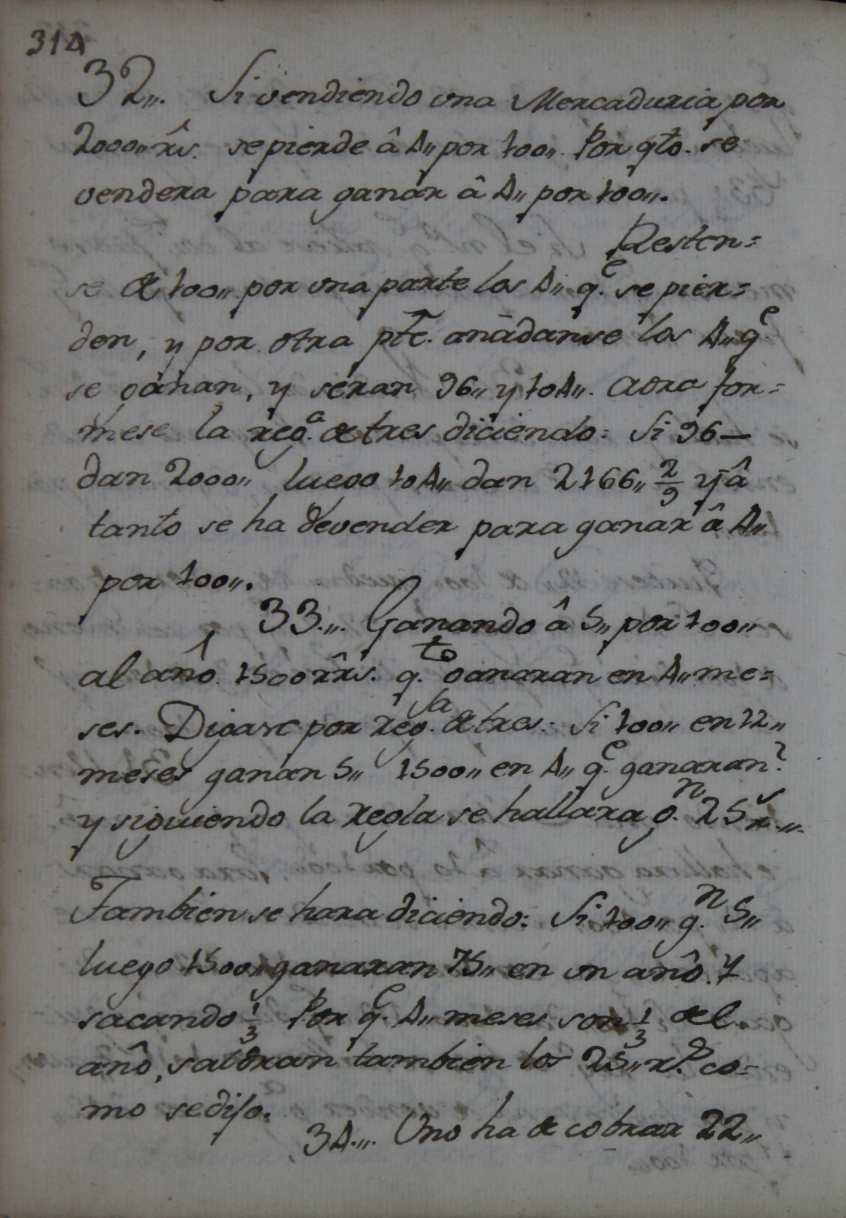 314
32,,. Si vendiendo una Mercaduria por
2000,, rˢ. se pierde â 4,, por 100,, Por qᵗᵒ. se
vendera para ganar â 4,, por 100,,.
Resten=
se de 100,, por una parte los 4,, q.ᵉ se pier=
den, y por otra pᵗᵉ. anãdanse los 4,, qᵉ
se gañan, y seran 96,, y 104,,. aora for=
mese la reg.ᵃ de tres diciendo: Si 96—
dan 2000,, luego 104,, dan 2166,, 2/9 y â
tanto se ha de vender para ganar â 4,,
por 100,,.
33.,,. Ganando â 5,, por 100,,
al anô. 1500 rrˢ. q.ᵗᵒ ganaran en 4,, me=
ses. Digase por reg.ˡᵃ de tres: Si 100,, en 12,,
meses ganan 5,, 1500,, en 4,, q.ᵉ ganaran?
y siguiendo la regla se hallara g.ⁿ 25 rˢ.,,.
Tambien se hara diciendo: Si 100,, g.ⁿ 5,,
luego 1500,, ganaran 75,, en un anô. Y
sacando 1/3 Por q.ᵉ 4,, meses son 1/3 del
anô, saldran tambien los 25,, r.ˢ co=
mo se dijo.
34.,,. Uno ha de cobrar 22,,